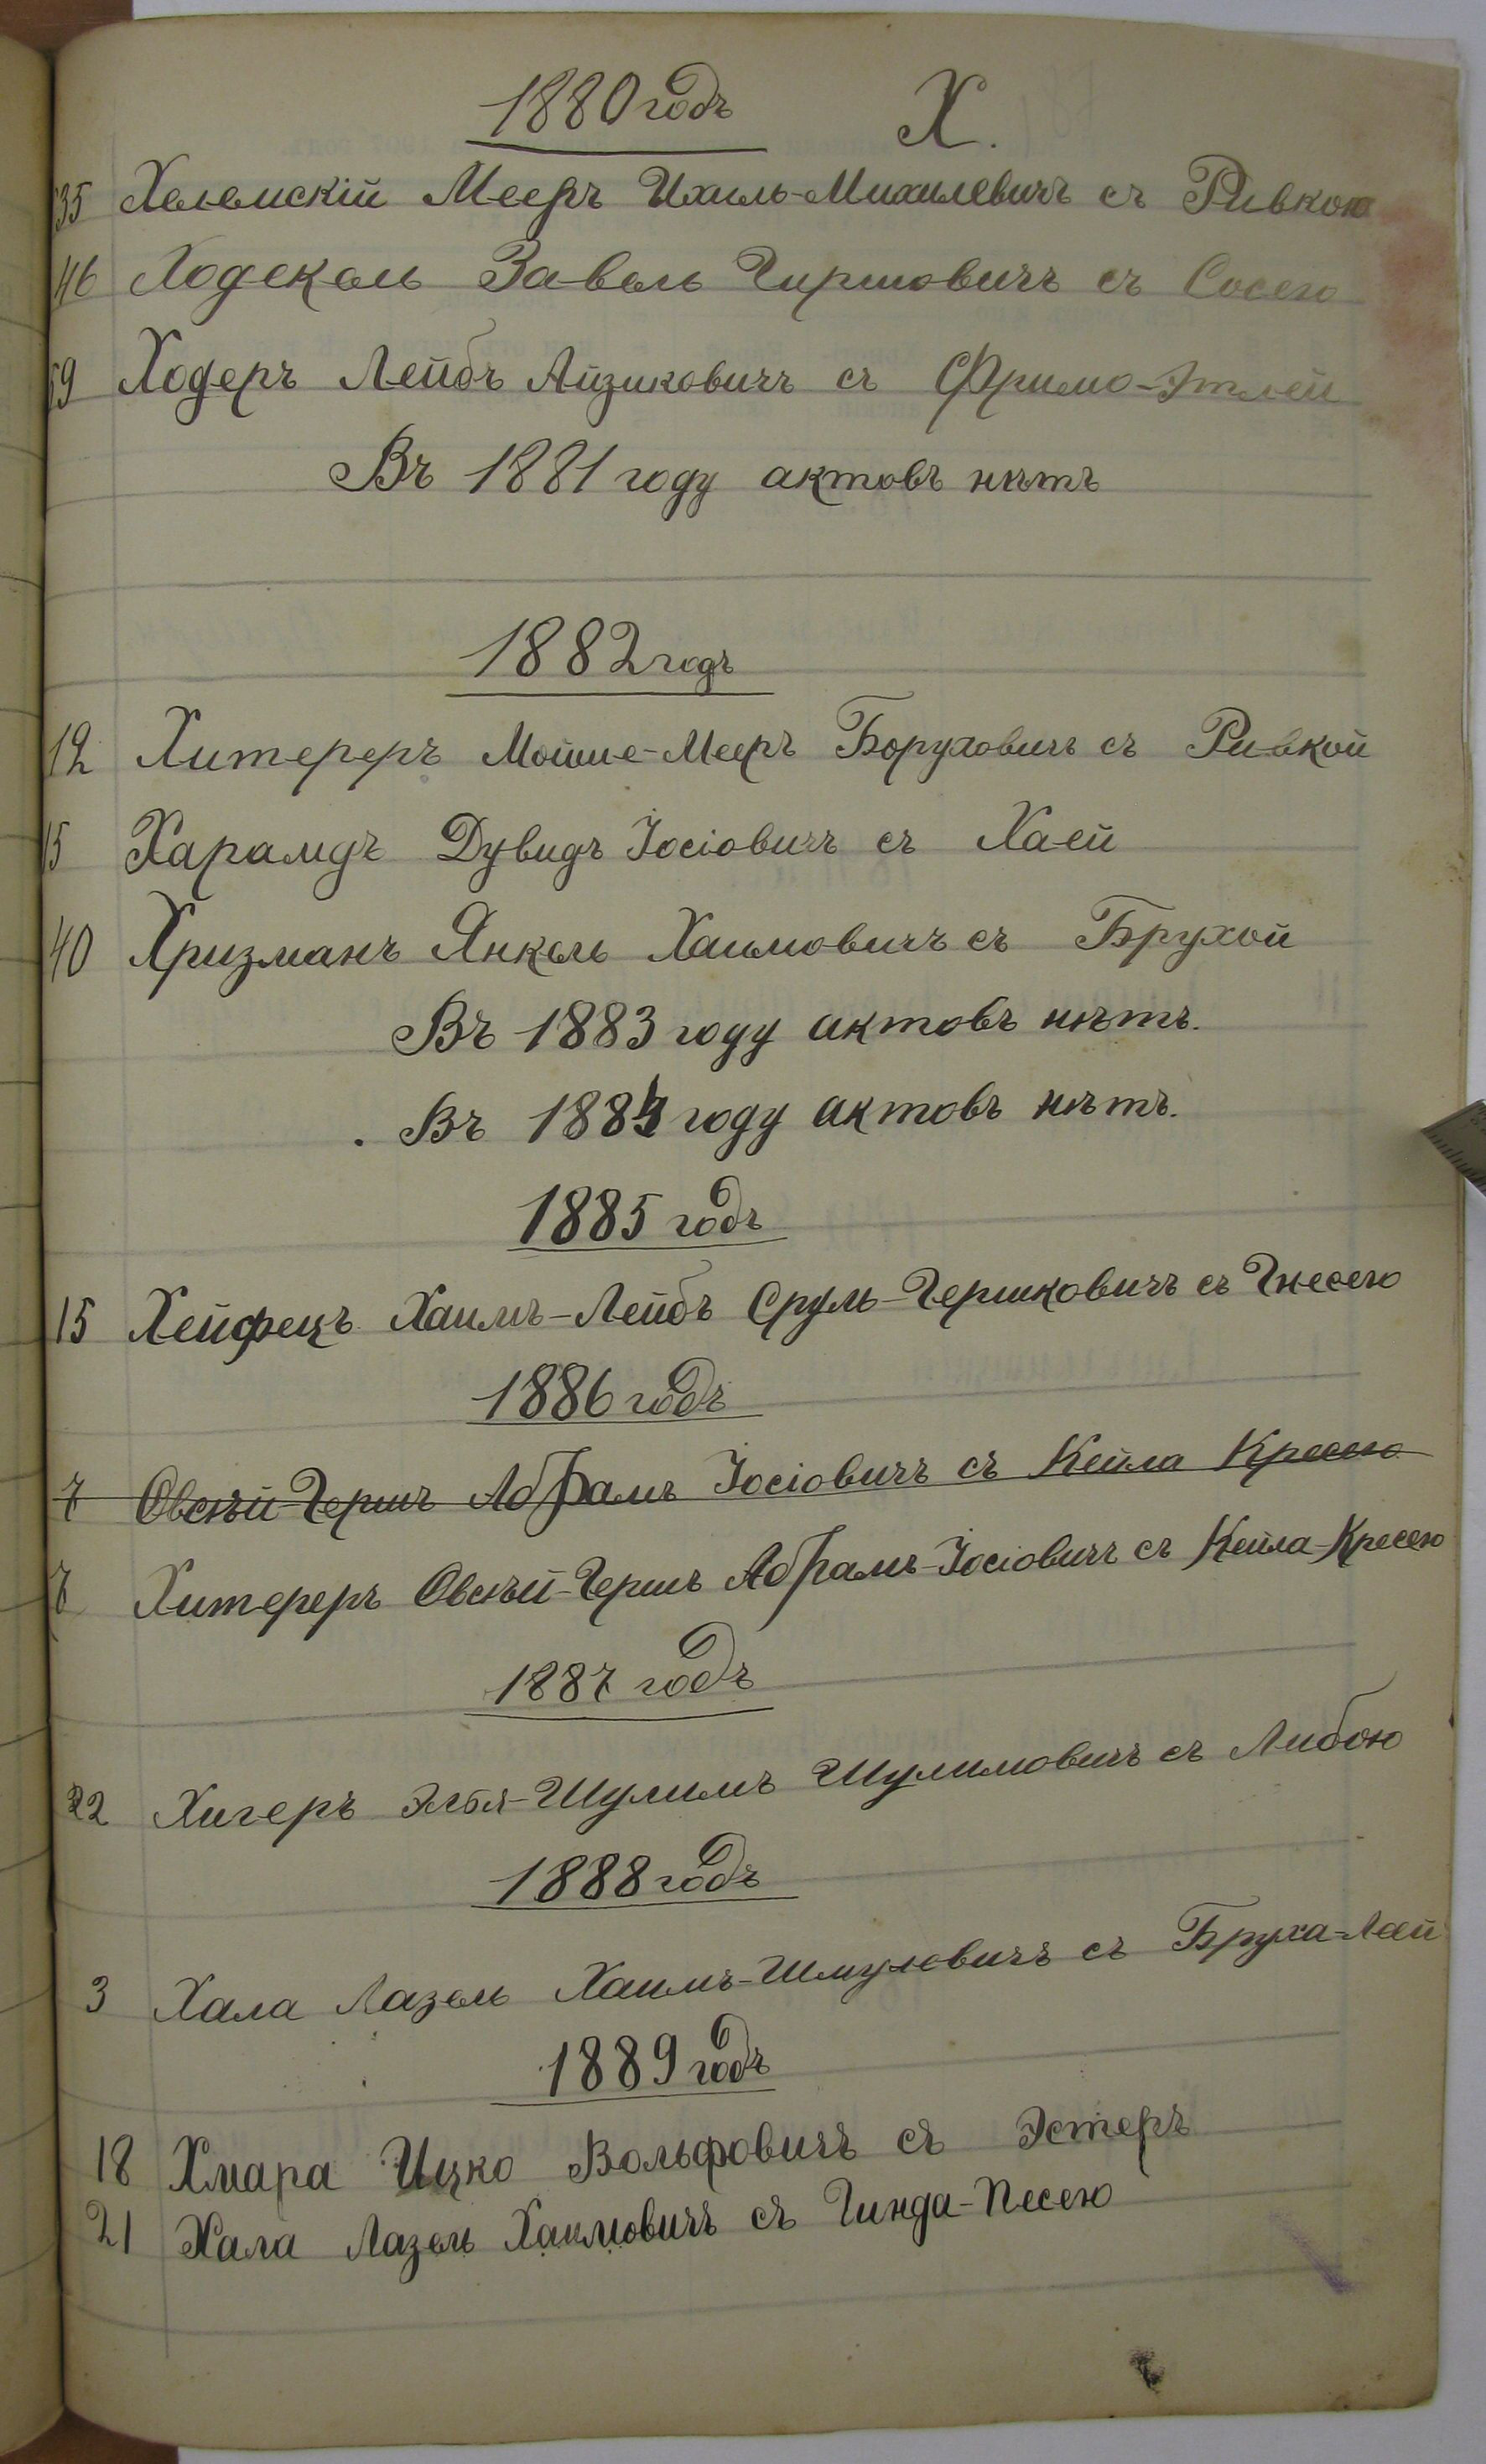 1880 годъ Х.
35 Хелемскій Мееръ Ихиль-Михилевичъ съ Ривкою
46 Ходекель Завель Гиршовичъ съ Сосею
59 Ходеръ Лейбъ Айзиковичъ съ Фримо-Этлей
Въ 1881 году актовъ нѣтъ
1882 годъ
12 Хитереръ Мойше-Мееръ Боруховичъ съ Ривкой
15 Харамдъ Дувидъ Іосіовичъ съ Хаей
40 Хризманъ Янкель Хаимовичъ съ Брухой
Въ 1883 году актовъ нѣтъ.
Въ 1884 году актовъ нѣтъ.
1885 годъ
15 Хейфецъ Хаимъ-Лейбъ Сруль-Гершковичъ съ Гнесею
1886 годъ
7 Овсѣй-Гершъ Абрамъ Іосіовичъ съ Кейла Кресею
7 Хитереръ Овсѣй-Гершъ Абрамъ-Іосіовичъ съ Кейла-Кресею
1887 годъ
22 Хигеръ Элья-Шулимъ Шулимовичъ съ Либою
1888 годъ
3 Хала Лазель Хаимъ-Шмулевичъ съ Бруха-Леей
1889 годъ
18 Хмара Ицко Вольфовичъ съ Эстеръ
21 Хала Лазель Хаимовичъ съ Гинда-Песею